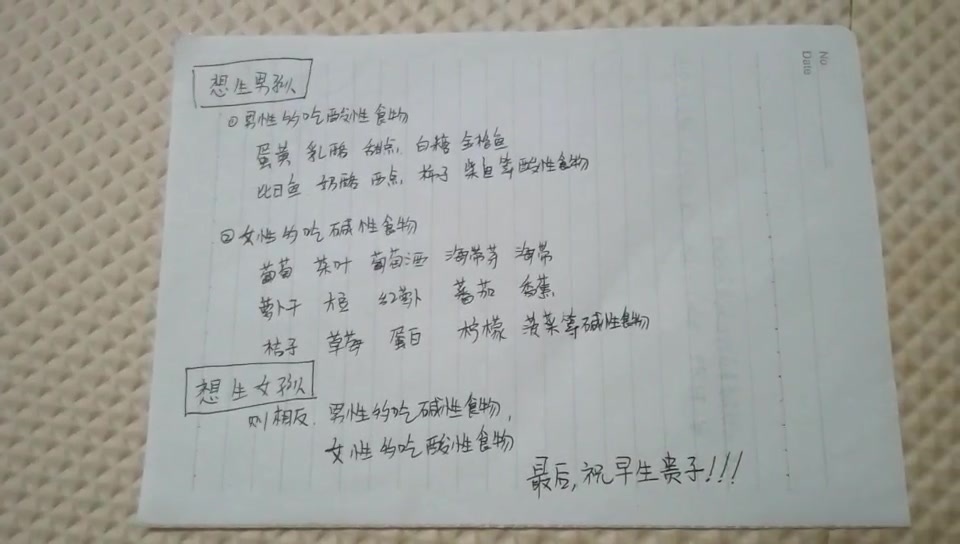 No
Date
想生男孩
①男性的吃酸性食物
蛋黄 乳酪 甜点 白糖 金枪鱼
比目鱼 奶酪 西点 柿子 柴鱼等酸性食物
②女性的吃碱性食物
葡萄 茶叶 葡萄酒 海带芽 海带
萝卜干 大豆 红萝卜 蕃茄 香蕉
桔子 草莓 蛋白 柠檬 菠菜等碱性食物
想生女孩
则相反.男性的吃碱性食物,
女性的吃酸性食物
最后,祝早生贵子!!!